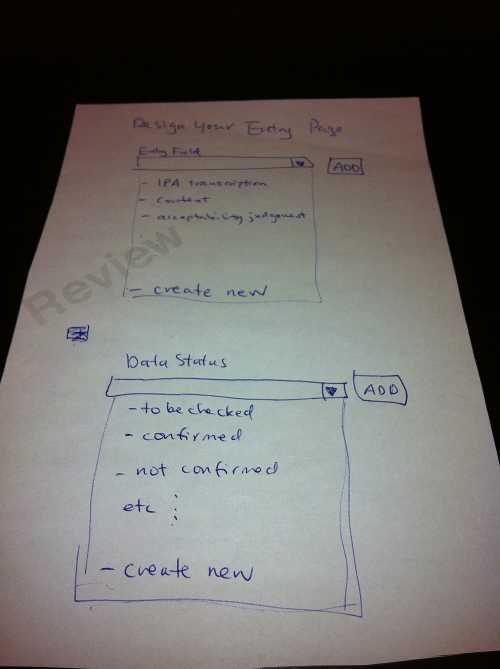 Design Your Entry Page
Entry Field
ADD
- IPA transcription
- context
- acceptability judgement
- create new
Review
Data Status
ADD
- to be checked
- confirmed
- not confirmed
etc
- create new